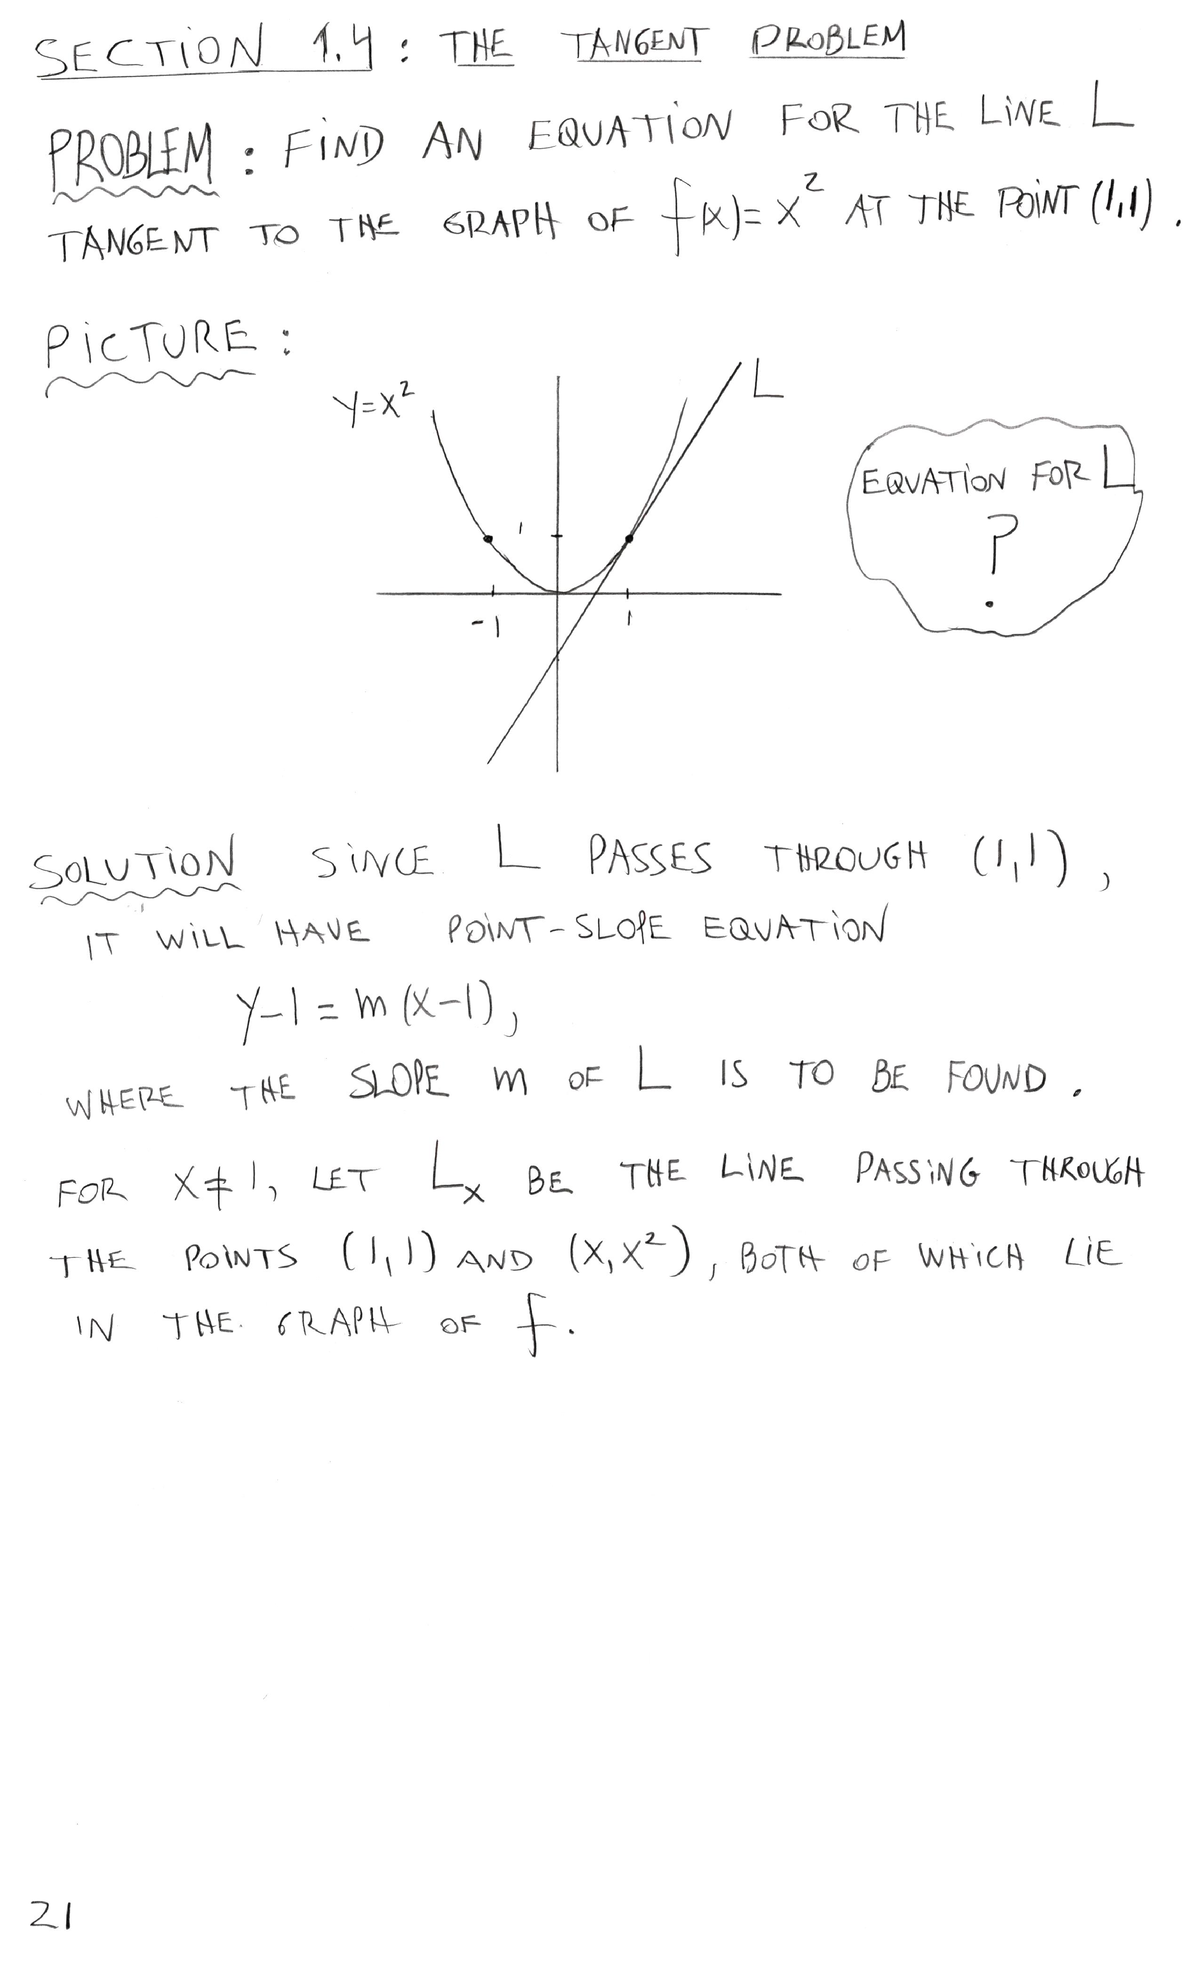 SECTION 1.4 : THE TANGENT PROBLEM
PROBLEM : FIND AN EQUATION FOR THE LINE L
TANGENT TO THE GRAPH OF f(x)=x² AT THE POINT (1,1).
PICTURE :
L
y=x²
EQUATION FOR L
?
1
-1
1
SOLUTION SINCE L PASSES THROUGH (1,1),
IT WILL HAVE POINT-SLOPE EQUATION
y-1=m(x-1),
WHERE THE SLOPE m OF L IS TO BE FOUND.
FOR x≠1, LET Lₓ BE THE LINE PASSING THROUGH
THE POINTS (1,1) AND (x,x²), BOTH OF WHICH LIE
IN THE GRAPH OF f.
21